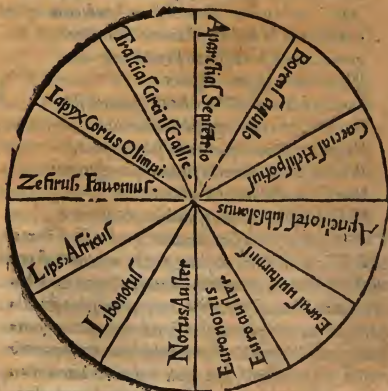 Aparctias Septētrio
Boreas aquilo
Caecias Helespōtius
Apeliotes subsolanus
Eurus vulturnus
Euroauster.
Euronotus
Notus Auster
Libonotus
Lips, Africus
Zefirus, Favonius.
Iapyx Corus Olimpi.
Trascias Circius Gallic.